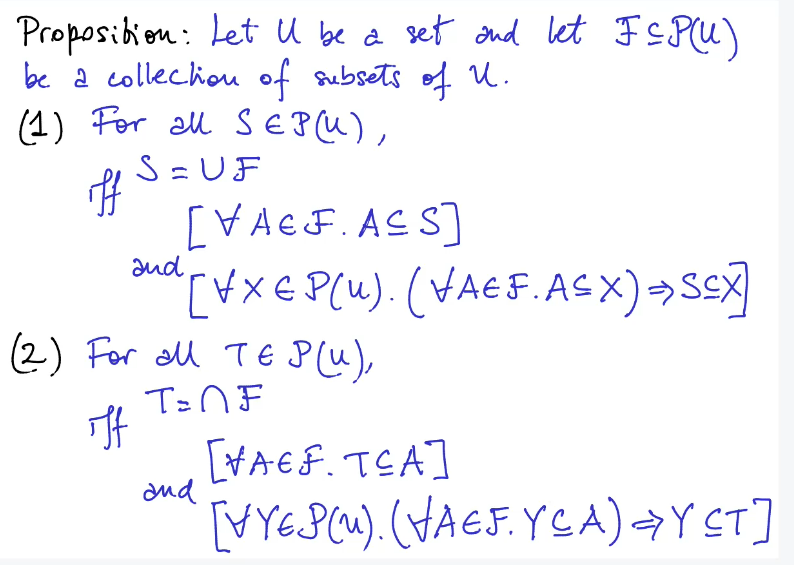 Proposition: Let U be a set and let F ⊆ P(U)
be a collection of subsets of U.
(1) For all S ∈ P(U),
S = ∪ F
iff
[∀ A ∈ F. A ⊆ S]
and
[∀ X ∈ P(U). (∀ A ∈ F. A ⊆ X) ⇒ S ⊆ X]
(2) For all T ∈ P(U),
T = ∩ F
iff
[∀ A ∈ F. T ⊆ A]
and
[∀ Y ∈ P(U). (∀ A ∈ F. Y ⊆ A) ⇒ Y ⊆ T]